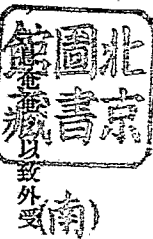 北京
圖書
館藏
奄奄以致外受
(南)